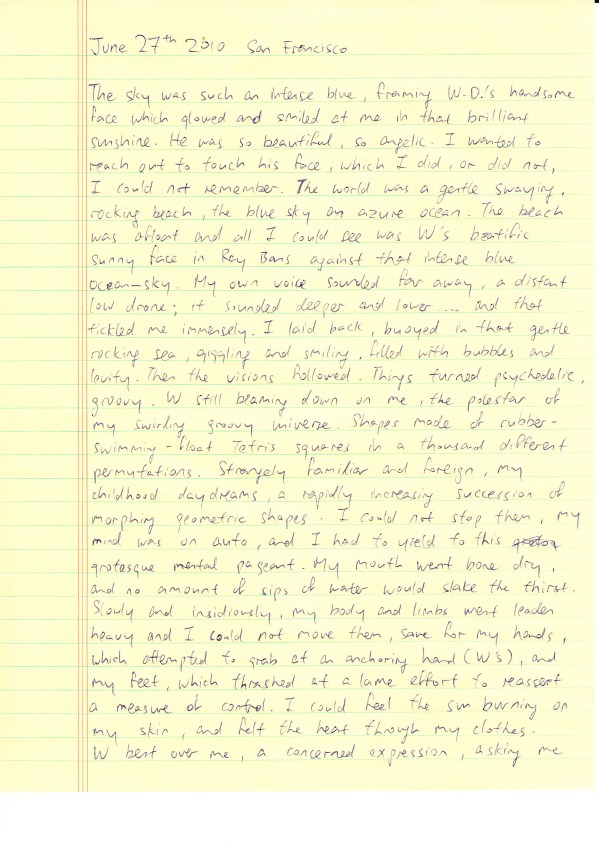 June 27th 2010 San Francisco
The sky was such an intense blue, framing W-D.'s handsome
face which glowed and smiled at me in that brilliant
sunshine. He was so beautiful, so angelic. I wanted to
reach out to touch his face, which I did, or did not,
I could not remember. The world was a gentle swaying,
rocking beach, the blue sky an azure ocean. The beach
was afloat and all I could see was W's beatific
sunny face in Ray Bans against that intense blue
ocean-sky. My own voice sounded far away, a distant
low drone; it sounded deeper and lower .... and that
tickled me immensely. I laid back, buoyed in that gentle
rocking sea, giggling and smiling, filled with bubbles and
levity. Then the visions followed. Things turned psychedelic,
groovy. W still beaming down on me, the polestar of
my swirling groovy universe. Shapes made of rubber-
swimming-float Tetris squares in a thousand different
permutations. Strangely familiar and foreign, my
childhood daydreams, a rapidly increasing succession of
morphing geometric shapes. I could not stop them, my
mind was on auto, and I had to yield to this
grotesque mental pageant. My mouth went bone dry,
and no amount of sips of water would slake the thirst.
Slowly and insidiously, my body and limbs went leaden
heavy and I could not move them, save for my hands,
which attempted to grab at an anchoring hand (W's), and
my feet, which thrashed at a lame effort to reassert
a measure of control. I could feel the sun burning on
my skin, and felt the heat through my clothes.
W bent over me, a concerned expression, asking me